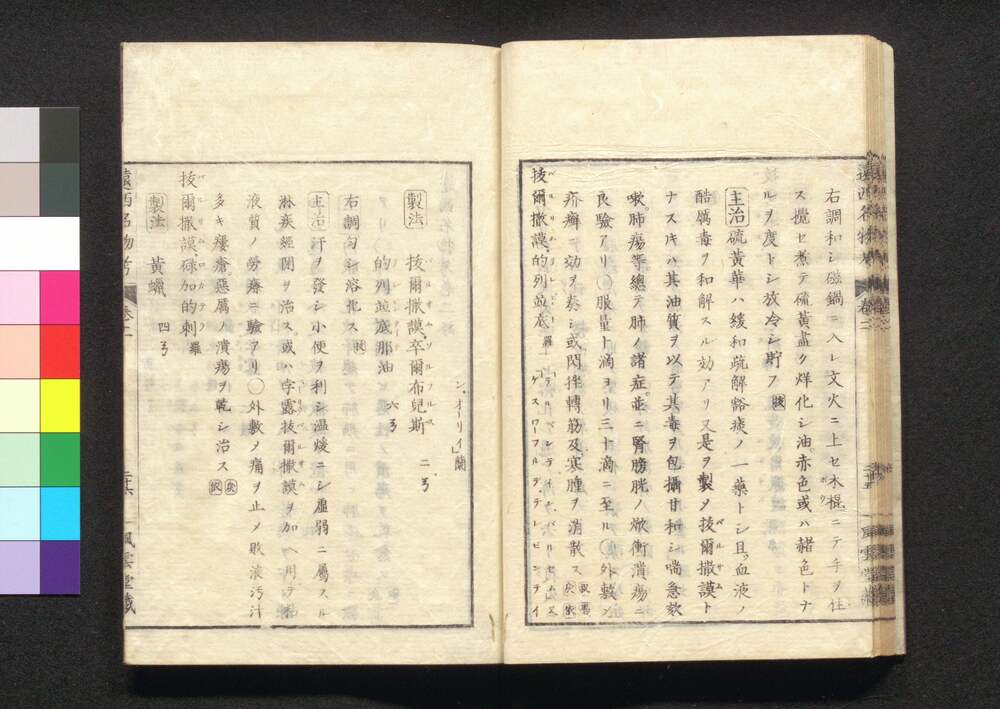 右調和シ磁鍋ニ入レ文火ニ上セ木棍ニテ手ヲ住
ス攪セ煮テ硫黄盡ク烊化シ油赤色或ハ赭色トナ
ルヲ度トシ放冷シ貯フ
主治 硫黄華ハ緩和疏解豁痰ノ一藥トシ且血液ノ
酷厲毒ヲ和解スルノ効アリ又是ヲ製メ抜爾撒謨ト
ナスキハ其油質ヲ以テ其毒ヲ包攝甘和シ喘急欬
嗽肺瘍等總テ肺ノ諸症並ニ腎膀胱ノ焮衝潰瘍ニ
良驗アリ〇服量十滴ヨリ三十滴ニ至ル〇外敷シ
疥癬ニ効ヲ奏シ或閃挫轉筋及寒腫ヲ消散ス
抜爾撒謨的列並底 羅
シ、オーリイ」蘭
製法 抜爾撒謨卒爾布兒斯 二ㄢ
的列並底那油 六ㄢ
右調匀シ溶化ス
主治 汗ヲ發シ小便ヲ利シ温煖ニシ虚弱ニ屬スル
淋疾經閉ヲ治ス或ハ孛露抜爾撒謨ヲ加ヘ用テ粘
液質ノ勞瘵ニ驗アリ〇外敷メ痛ヲ止メ敗液汚汁
多キ瘻瘡惡厲ノ潰瘍ヲ乾シ治ス
抜爾撒謨碌加的刺 羅
製法 黄蠟 四ㄢ
遠西名物考 卷二 二十六 風雲堂藏